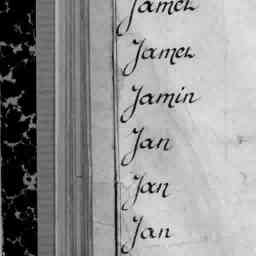 James
James
Jamin
Jan
Jan
Jan